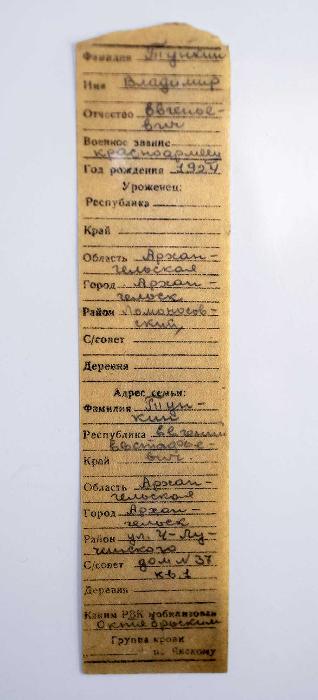 Фамилия Тункин
Имя Владимир
Отчество Евгенье-
вич
Военное звание
красноармеец
Год рождения 1924
Уроженец:
Республика
Край
Область Архан-
гельская
Город Архан-
гельск
Район Ломоносов-
ский
С/совет
Деревня
Адрес семьи:
Фамилия Тун-
кин
Республика Евгений
Евстафье-
Край вич
Область Архан-
гельская
Город Архан-
гельск
Район ул. Ч-Лу-
чинского
С/совет дом N 37
кв. 1
Деревня
Каким РВК мобилизован
Октябрьским
Группа крови
по Янскому